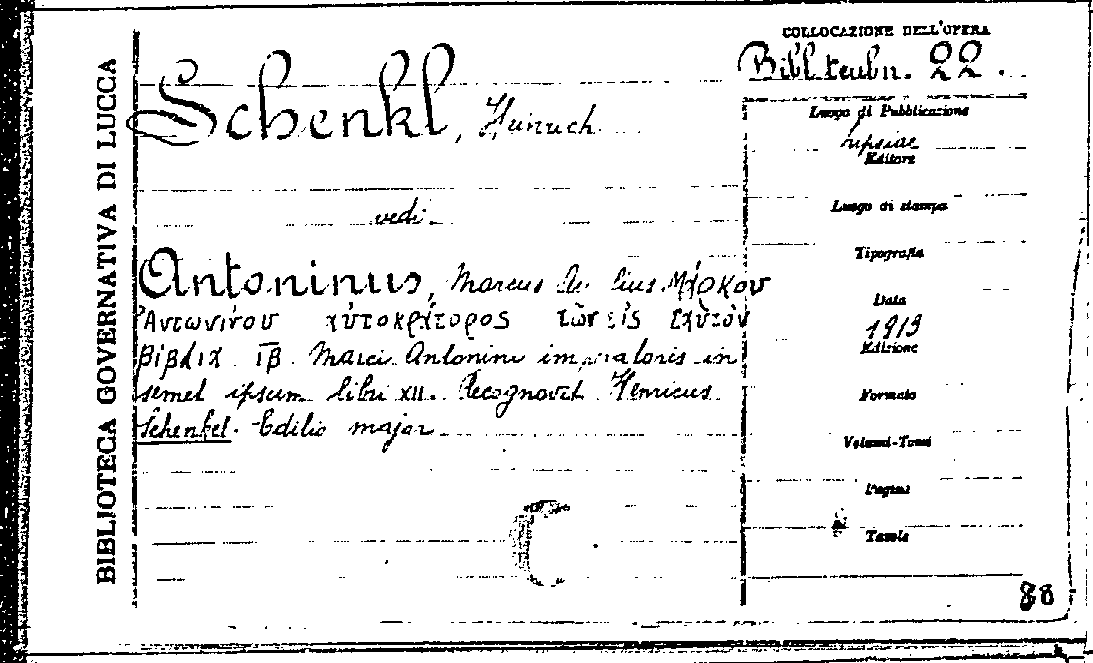 BIBLIOTECA GOVERNATIVA DI LUCCA
COLLOCAZIONE DELL'OPERA
Bibl. teubn. 22.
Schenkl, Heinrich
vedi
Antoninus, Marcus Μάρκου
Ἀντωνίνου αὐτοκράτορος τῶν εἰς ἑαυτὸν
βιβλια ΙΒ. Marci Antonini imperatoris in
semet ipsum libri XII. Recognovit Henricus
Schenkel. Editio major
Luogo di Pubblicazione
Lipsiae
Editore
Luogo di stampa
Tipografia
Data
1913
Edizione
Formato
Volumi-Tomi
Pagine
Tavole
88